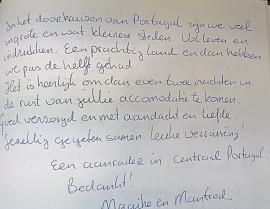 In het doorkruisen van Portugal zijn we veel
in grote en wat kleinere steden. Vol leven en
indrukken. Een prachtig land en dan hebben
we pas de helft gehad.
Het is heerlijk om dan even twee nachten in
de rust van jullie accomodatie te komen.
Goed verzorgd en met aandacht en liefde.
Gezellig gegeten samen. Leuke verrassing!
Een aanrader in centraal Portugal
Bedankt!
Maaike en Manfred